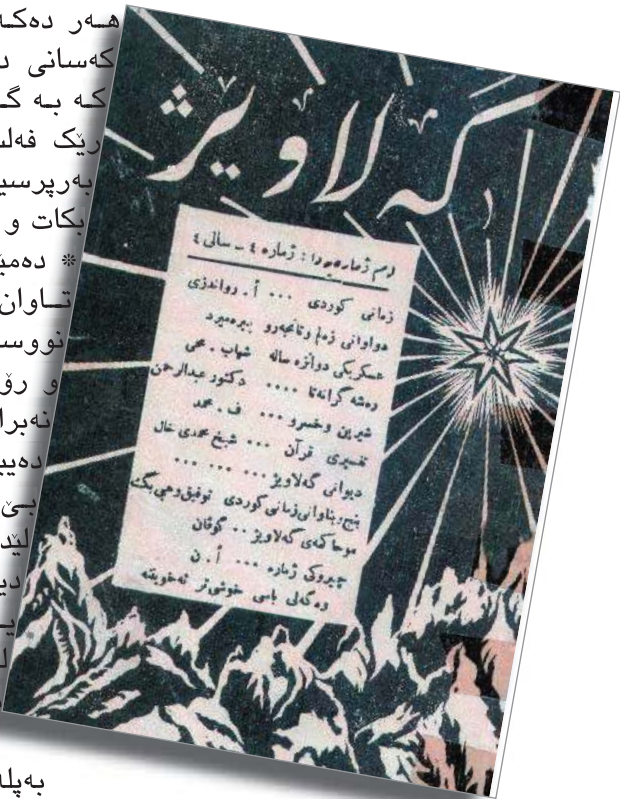 هەر دەکە
کەسانی د
کە بە گ
ڕێک فەلس
بەرپرسی
بکات و
* دەمێ
تاوان
نووس
و ڕۆ
نەبرا
دەیی
بێ
لێد
دی
ی
ل
بەپلە
گەلاوێژ
لەم ژمارەیەدا : ژمارە ٤ ــ سالی ٤
زمانی کوردی ... أ . رواندزی
دواوانی زەلم وتانجەرو بیرەمیرد
عسکریکی دوانزە سالە شهاب . محی
رەشە گرانەتا .... دکتور عبدالرحمن
شیرین وخسرو ... ف . محمد
تفسیری قرآن ... شیخ محمدی خال
دیوانی گەلاویژ ... ... ...
پنج ریناوانی زمانی کوردی توفیق وهبی بگ
موحاکەی گەلاویژ .. گوڤان
چیروکی ژمارە ... أ . ن
وەگەلی باسی خوشی تر ئەخوینتە